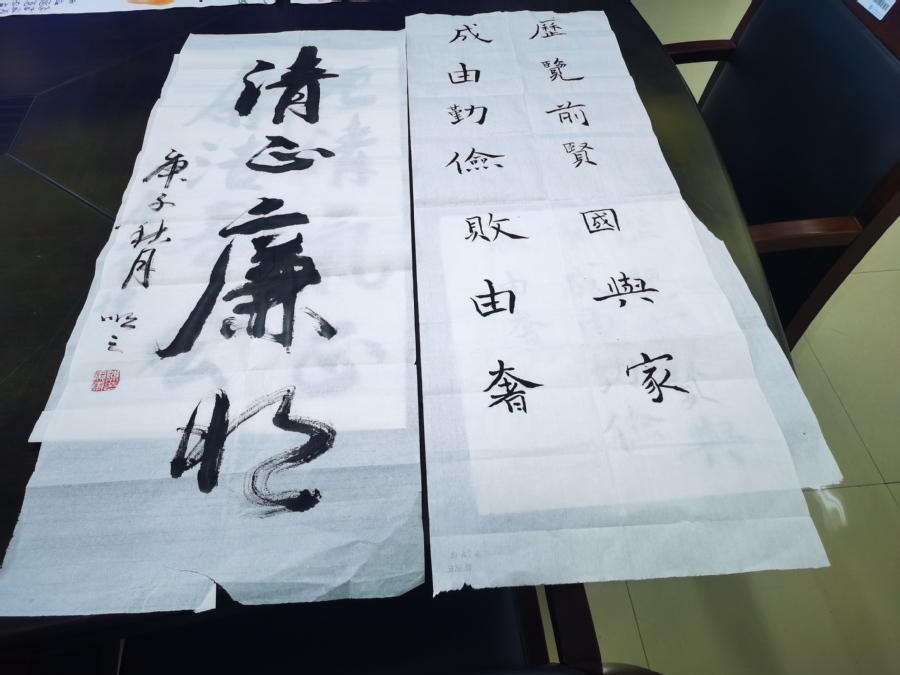 歷覽前賢國與家
成由勤儉敗由奢
清正廉明
庚子秋月